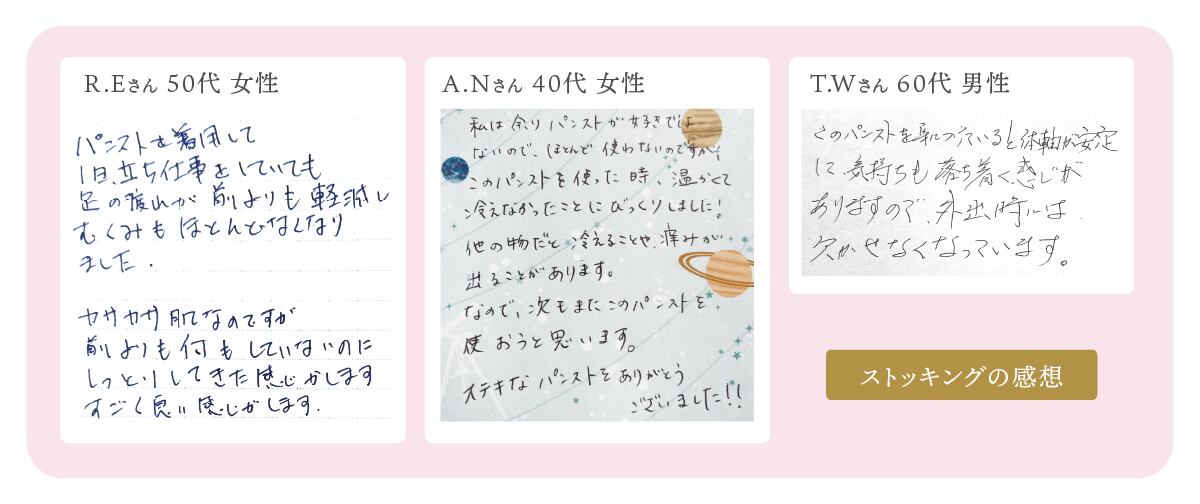 R.Eさん 50代 女性
パンストを着用して
1日、立ち仕事をしていても
足の疲れが前よりも軽減し
むくみもほとんどなくなり
ました.
カサカサ肌なのですが
前よりも何もしていないのに
しっとりしてきた感じがします
すごく良い感じがします.
A.Nさん 40代 女性
私は余りパンストが好きでは
ないので、ほとんど使わないのですが、
このパンストを使った時、温かくて
冷えなかったことにびっくりしました!
他の物だと冷えることや、痛みが
出ることがあります。
なので、次もまたこのパンストを
使おうと思います。
ステキなパンストをありがとう
ございました!!
T.Wさん 60代 男性
このパンストを身につけていると体軸が安定
して気持ちも落ち着く感じが
ありますので、外出時には
欠かせなくなっています。
ストッキングの感想